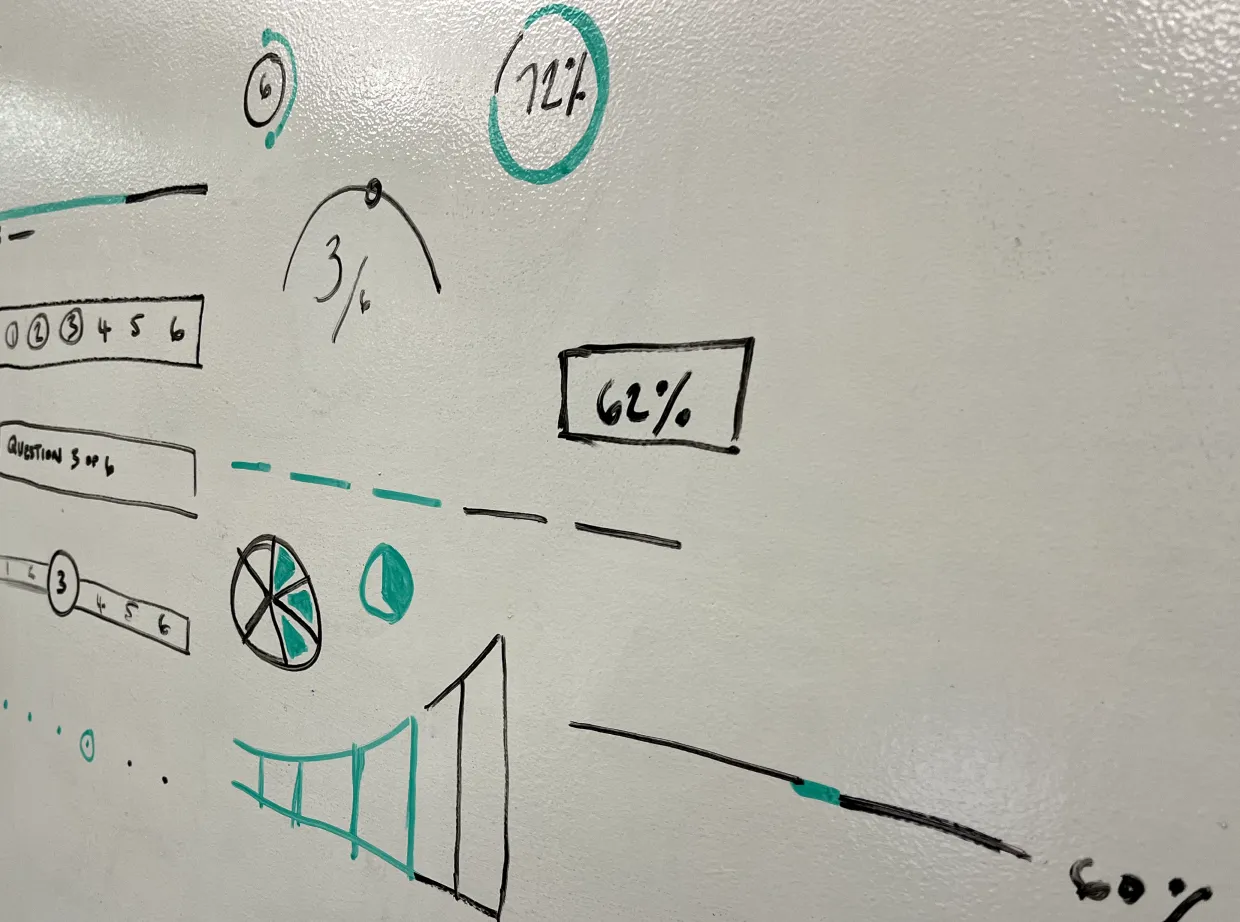 6
72%
3/6
1 2 3 4 5 6
62%
QUESTION 3 OF 6
3
4 5 6
60%